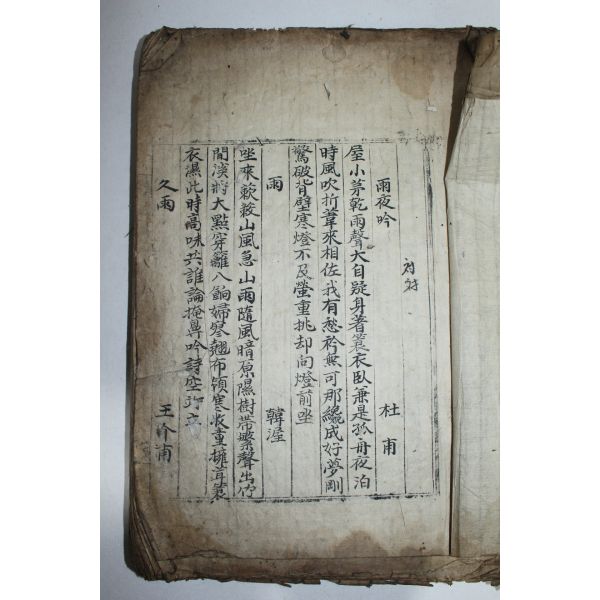 雨夜吟 杜甫
屋小茅乾雨聲大自疑身著簑衣臥兼是孤舟夜泊
時風吹折葦來相佐我有愁衿無可那纔成好夢剛
驚破背壁寒燈不及螢重挑却向燈前坐
雨 韓渥
坐來簌簌山風急山雨隨風暗原隰樹帶繁聲出竹
聞溪將大點穿籬入餉婦寥翹布領寒牧童擁腫簑
衣濕此時高味共誰論掩鼻吟詩空竚立
久雨 王介甫